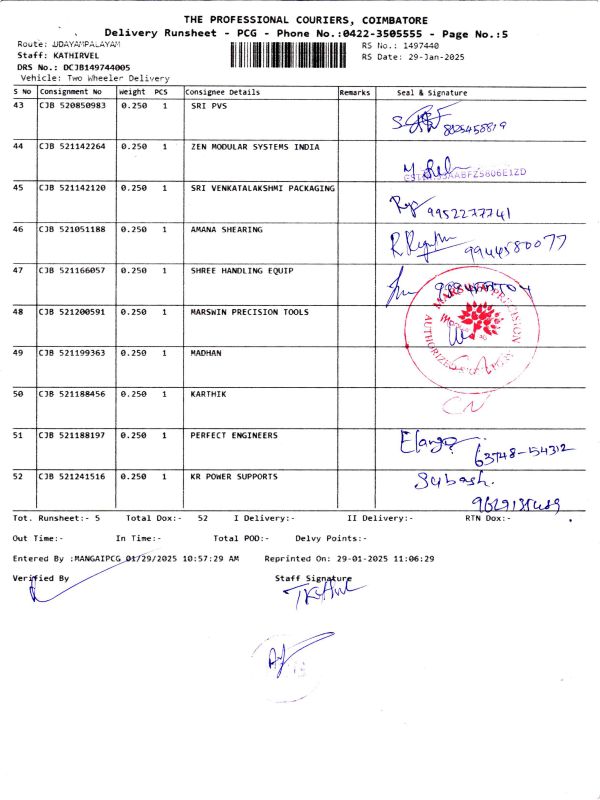 THE PROFESSIONAL COURIERS, COIMBATORE
Delivery Runsheet - PCG - Phone No.:0422-3505555 - Page No.:5
Route: UDAYAMPALAYAM
RS No.: 1497440
Staff: KATHIRVEL
RS Date: 29-Jan-2025
DRS No.: DCJB149744005
Vehicle: Two Wheeler Delivery
S No Consignment No Weight PCS Consignee Details Remarks Seal & Signature
43 CJB 520850983 0.250 1 SRI PVS
44 CJB 521142264 0.250 1 ZEN MODULAR SYSTEMS INDIA
45 CJB 521142120 0.250 1 SRI VENKATALAKSHMI PACKAGING 9952277741
46 CJB 521051188 0.250 1 AMANA SHEARING 9944580077
47 CJB 521166057 0.250 1 SHREE HANDLING EQUIP
48 CJB 521200591 0.250 1 MARSWIN PRECISION TOOLS
49 CJB 521199363 0.250 1 MADHAN
50 CJB 521188456 0.250 1 KARTHIK
51 CJB 521188197 0.250 1 PERFECT ENGINEERS 63748-54312
52 CJB 521241516 0.250 1 KR POWER SUPPORTS Subash.
Tot. Runsheet:- 5 Total Dox:- 52 I Delivery:- II Delivery:- RTN Dox:-
Out Time:- In Time:- Total POD:- Delvy Points:-
Entered By :MANGAIPCG 01/29/2025 10:57:29 AM Reprinted On: 29-01-2025 11:06:29
Verified By Staff Signature